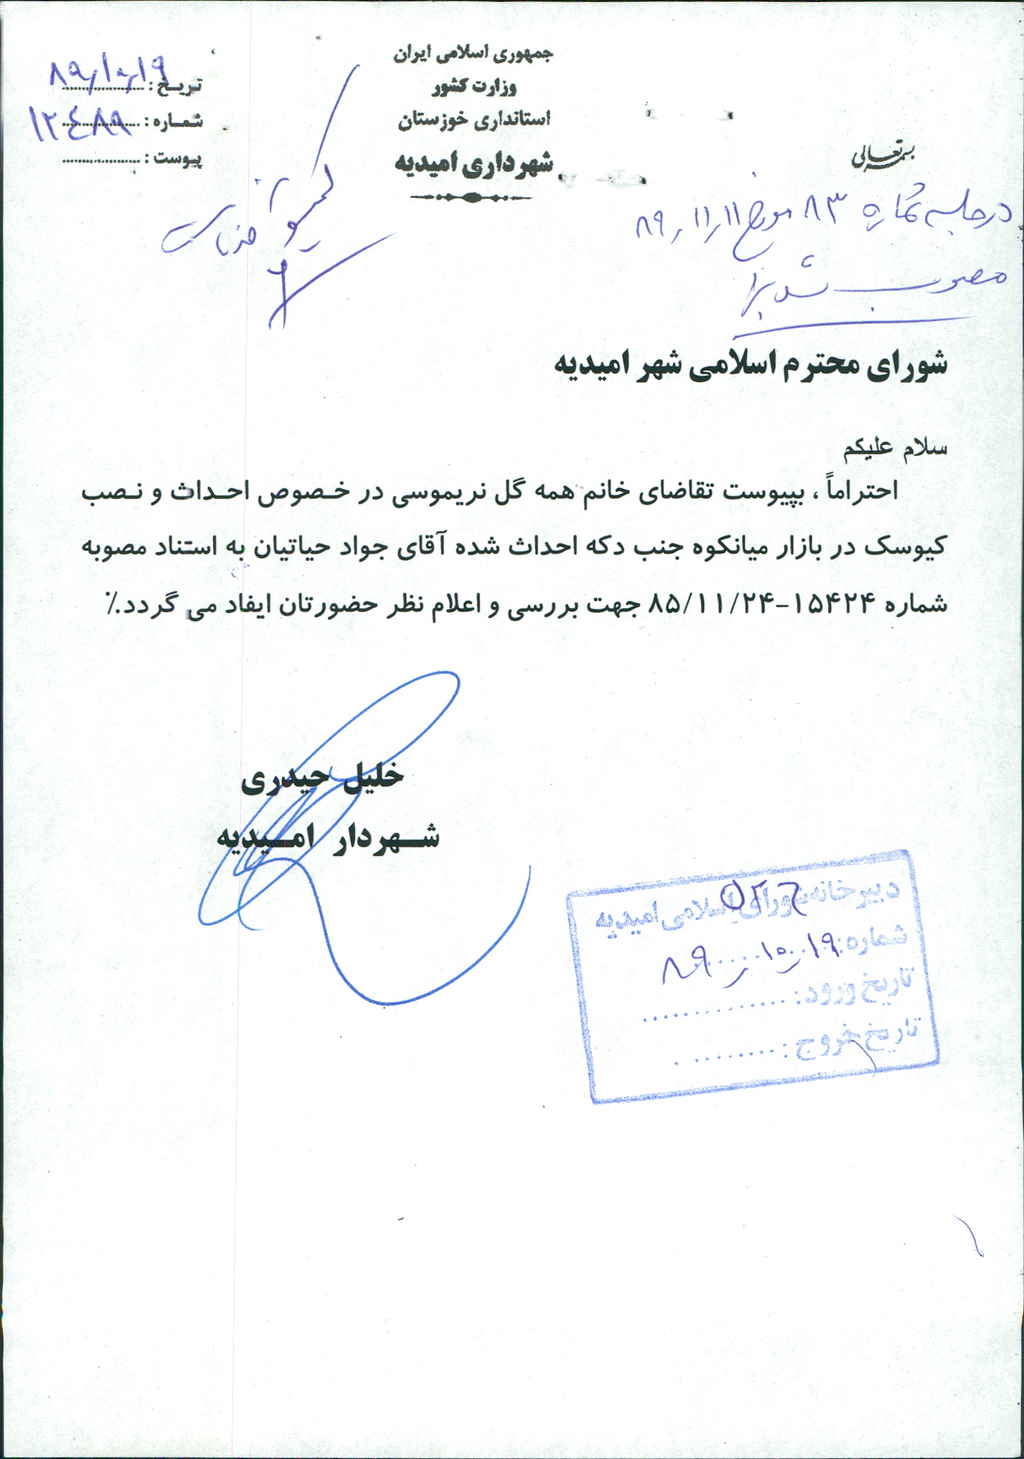 بسمه تعالی
جمهوری اسلامی ایران
وزارت کشور
استانداری خوزستان
شهرداری امیدیه
تاریخ : ۸۹٫۱۰٫۱۹
شماره : ۱۲۴۸۹
پیوست :
در جلسه شماره ۸۳ مورخ ۸۹٫۱۱٫۱۱
مصوب شد
کمیسیون
شورای محترم اسلامی شهر امیدیه
سلام علیکم
احتراماً ، بپیوست تقاضای خانم همه گل نریموسی در خصوص احداث و نصب
کیوسک در بازار میانکوه جنب دکه احداث شده آقای جواد حیاتیان به استناد مصوبه
شماره ۱۵۴۲۴-۸۵/۱۱/۲۴ جهت بررسی و اعلام نظر حضورتان ایفاد می گردد.٪
خلیل حیدری
شهردار امیدیه
دبیرخانه شورای اسلامی امیدیه
شماره: ۸۹٫۱۰٫۱۹
تاریخ ورود:
تاریخ خروج: